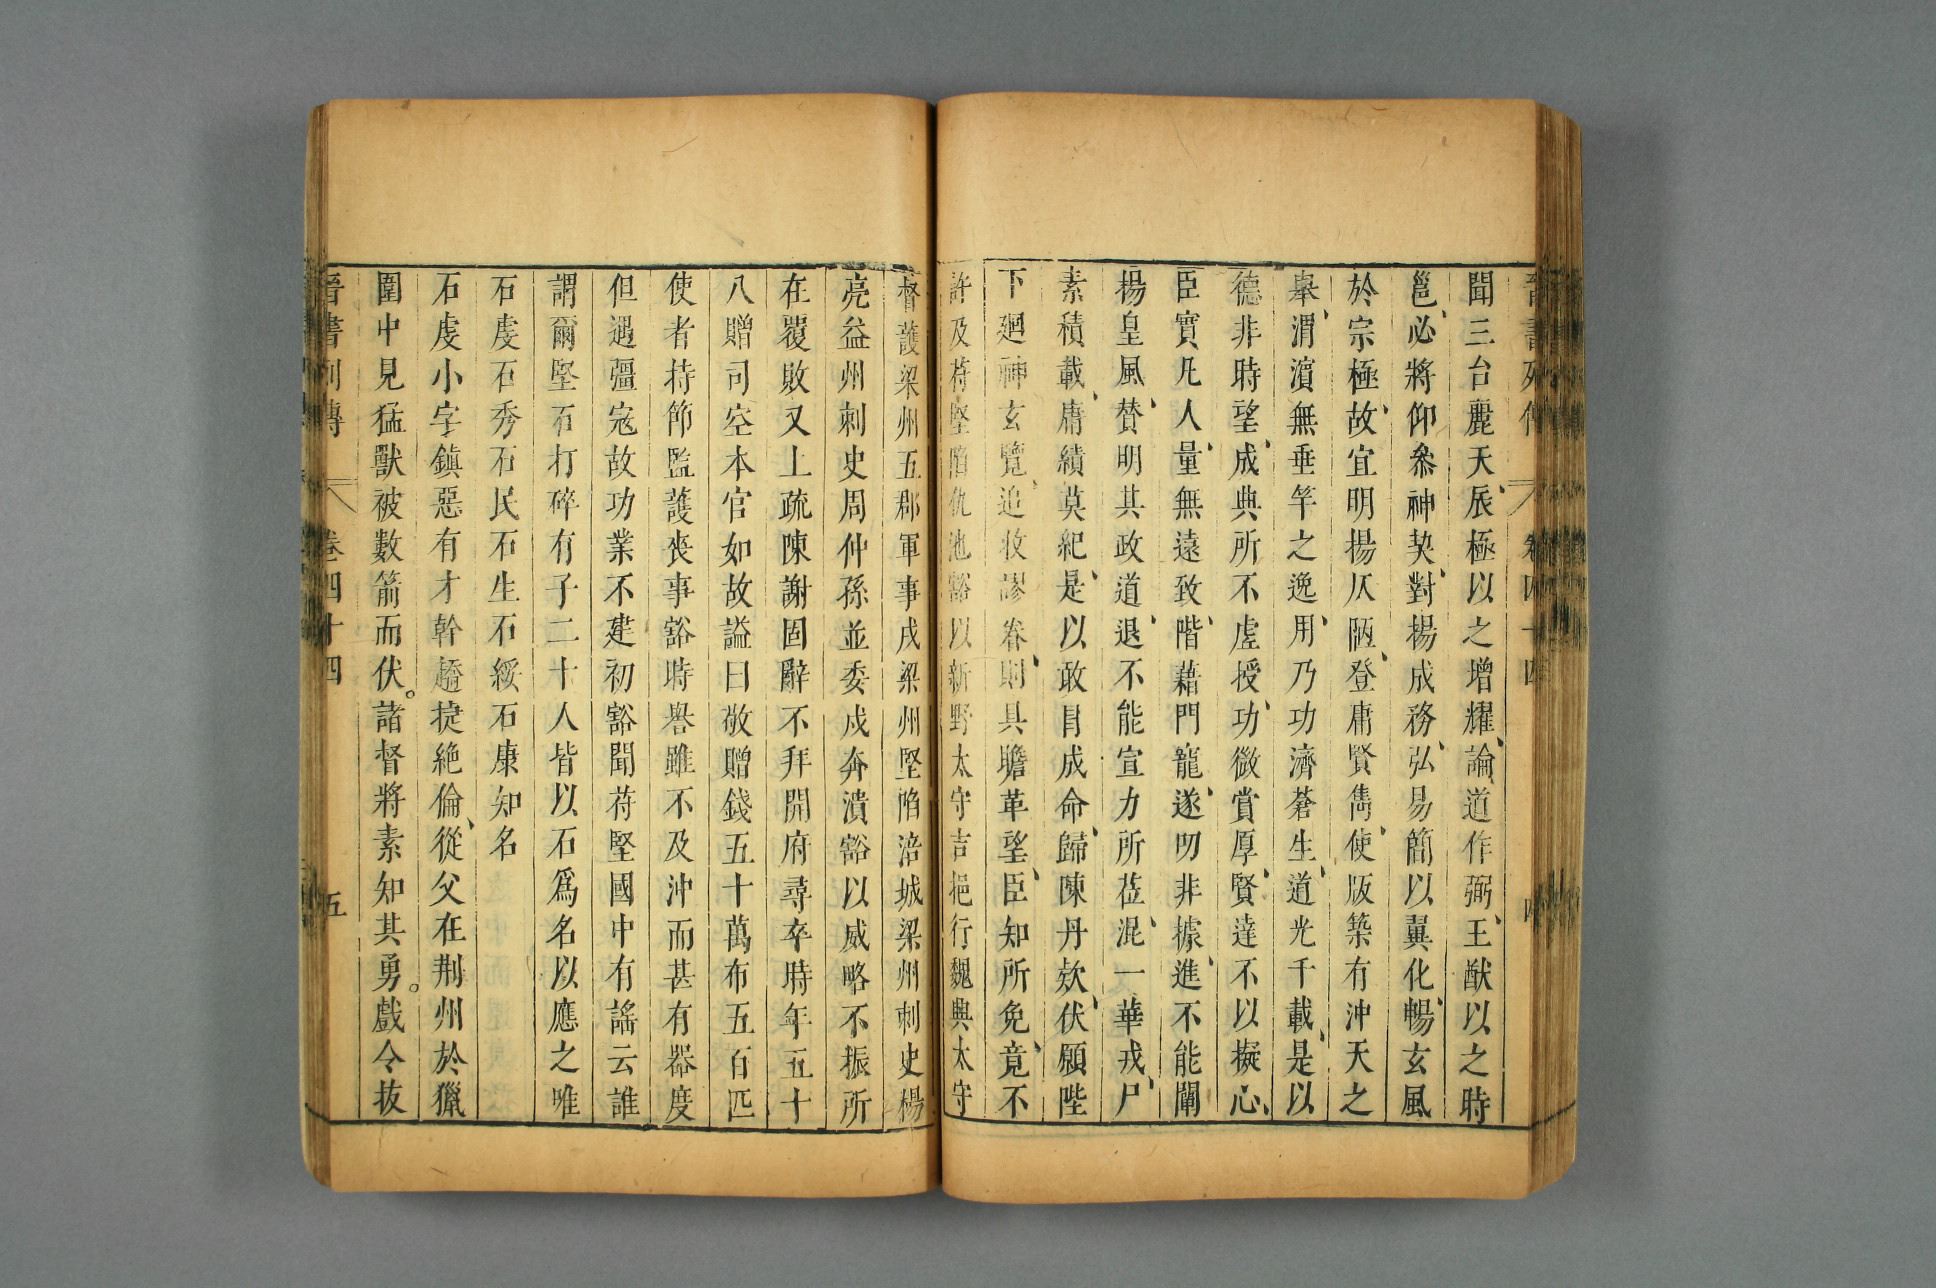 晉書列傳 卷四十四 四
聞三台麗天辰極以之增耀論道作弼王猷以之時
邕必將仰叅神契對揚成務弘易簡以翼化暢玄風
於宗極故宜明揚仄陋登庸賢雋使版築有沖天之
舉渭濱無垂竿之逸用乃功濟蒼生道光千載是以
德非時望成典所不虛授功微賞厚賢達不以擬心
臣實凡人量無遠致階藉門寵遂叨非據進不能闡
揚皇風贊明其政道退不能宣力所莅混一華戎尸
素積載庸績莫紀是以敢冒成命歸陳丹欵伏願陛
下廻神玄覽追收謬眷則具瞻革望臣知所免竟不
許及苻堅陷仇池豁以新野太守吉挹行魏興太守
督護梁州五郡軍事戍梁州堅陷涪城梁州刺史楊
亮益州刺史周仲孫並委戍奔潰豁以威略不振所
在覆敗又上疏陳謝固辭不拜開府尋卒時年五十
八贈司空本官如故謚曰敬贈錢五十萬布五百匹
使者持節監護喪事豁時譽雖不及沖而甚有器度
但遇彊寇故功業不建初豁聞苻堅國中有謠云誰
謂爾堅石打碎有子二十人皆以石爲名以應之唯
石虔石秀石民石生石綏石康知名
石虔小字鎮惡有才幹趫捷絶倫從父在荆州於獵
圍中見猛獸被數箭而伏諸督將素知其勇戲令拔
晉書列傳 卷四十四 五